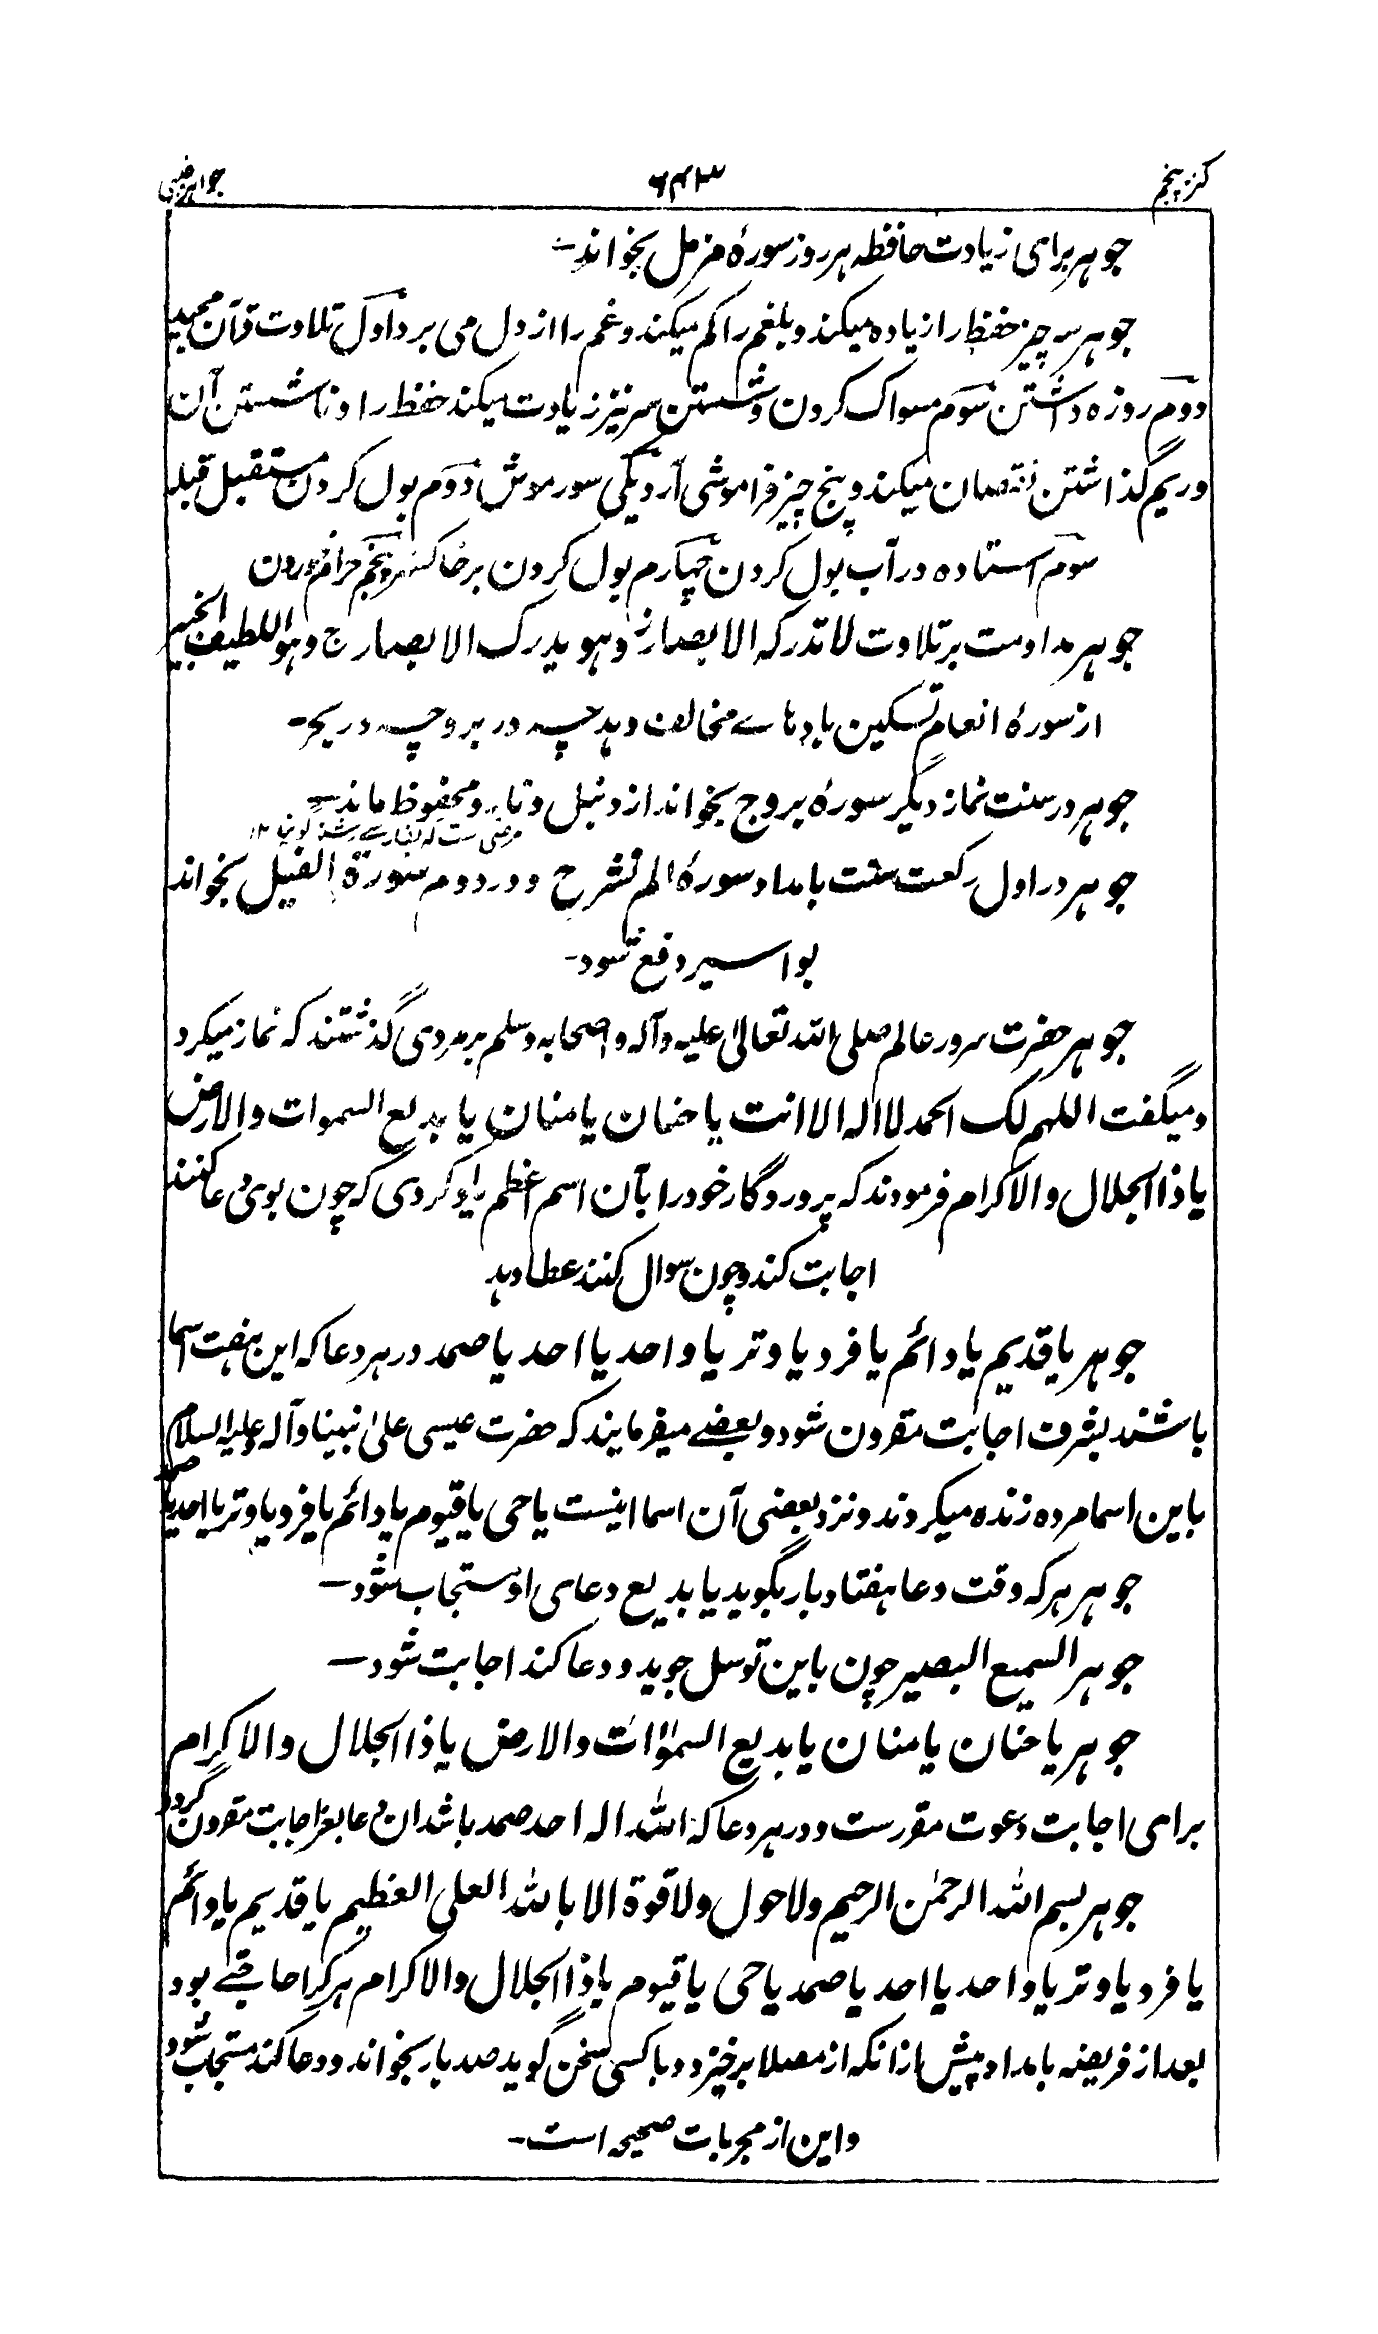 کنز پنجم ۶۴۳ جواهر غیبی
جوهر برای زیادت حافظه هر روز سورهٔ مزمل بخواند۔
جوهر سه چیز حفظ را زیاده میکند و بلغم را کم میکند و غم را از دل می برد اول تلاوت قرآن مجید
دوم روزه داشتن سوم مسواک کردن و شستن سر نیز زیادت میکند حفظ را و ناشستن آن
و ریم گذاشتن نقصان میکند و پنج چیز فراموشی آرد یکی سور موش دوم بول کردن مستقبل قبله
سوم استاده در آب بول کردن چهارم بول کردن بر خاکستر و پنجم حرام خوردن
جوهر مداومت بر تلاوت لا تدرکه الابصار ز وهو یدرک الابصار ج وهو اللطیف الخبیر
از سورهٔ انعام تسکین بادهاے مخالف دهد چه در بر و چه در بحر۔
جوهر در سنت نماز دیگر سورهٔ بروج بخواند از دنبل و نارو محفوظ ماند۔
مرضی ست که بفارسے رشته گویند ۱۲
جوهر در اول رکعت سنت بامداد سورهٔ الم نشرح و در دوم سورة الفیل بخواند
بواسیر دفع شود۔
جوهر حضرت سرور عالم صلی الله تعالیٰ علیه وآله واصحابه وسلم بر مردی گذشتند که نماز میکرد
و میگفت اللهم لک الحمد لا اله الا انت یا حنان یا منان یا بدیع السموات والارض
یا ذا الجلال والاکرام فرمودند که پروردگار خود را بآن اسم اعظم یاد کردی که چون بوی دعا کنند
اجابت کند و چون سوال کنند عطا دهد
جوهر یا قدیم یا دائم یا فرد یا وتر یا واحد یا احد یا صمد در هر دعا که این هفت اسما
باشند بشرف اجابت مقرون شود و بعضے میفرمایند که حضرت عیسی علیٰ نبینا وآله وعلیه السلام
باین اسما مرده زنده میکردند و نزد بعضی آن اسما اینست یا حی یا قیوم یا دائم یا فرد یا وتر یا احد یا صمد
جوهر هر که وقت دعا هفتاد بار بگوید یا بدیع دعای او مستجاب شود۔
جوهر السمیع البصیر چون باین توسل جوید و دعا کند اجابت شود۔
جوهر یا حنان یا منان یا بدیع السموات والارض یا ذا الجلال والاکرام
برای اجابت دعوت مقررست و در هر دعا که الله اله احد صمد باشد ان دعا بعز اجابت مقرون گردد
جوهر بسم الله الرحمٰن الرحیم ولا حول ولا قوة الا بالله العلی العظیم یا قدیم یا دائم
یا فرد یا وتر یا واحد یا احد یا صمد یا حی یا قیوم یا ذا الجلال والاکرام هر کرا حاجتے بود
بعد از فریضه بامداد پیش از انکه از مصلا برخیزد و با کسی سخن گوید صد بار بخواند و دعا کند مستجاب شود
و این از مجربات صحیحه است۔